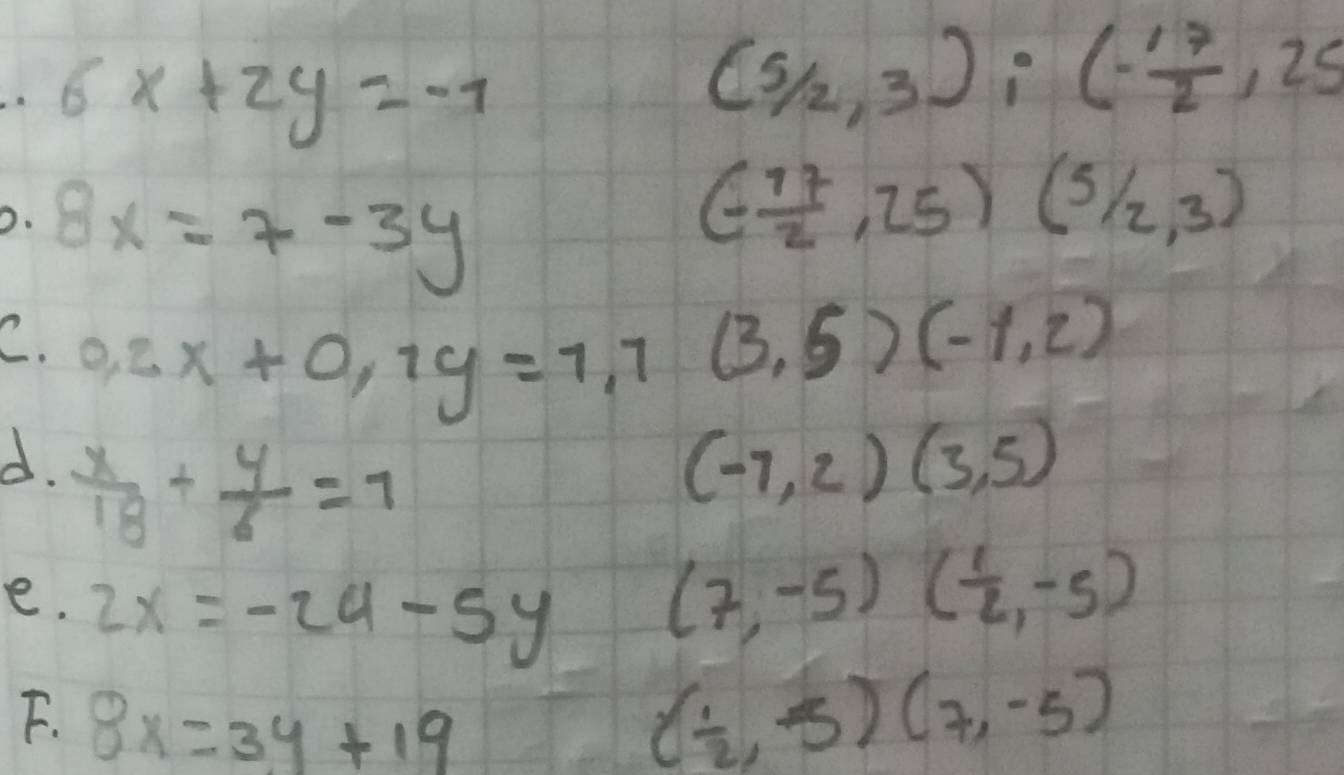 . 6x + 2y = -1 (5/2, 3) ; (-17/2, 25
b. 8x = 7 - 3y (-17/2, 25) (5/2, 3)
c. 0,2x + 0,1y = 1,1 (3, 5) (-1, 2)
d. x/18 + y/6 = 1 (-1, 2) (3, 5)
e. 2x = -24 - 5y (7, -5) (1/2, -5)
F. 8x = 3y + 19 (1/2, -5) (7, -5)